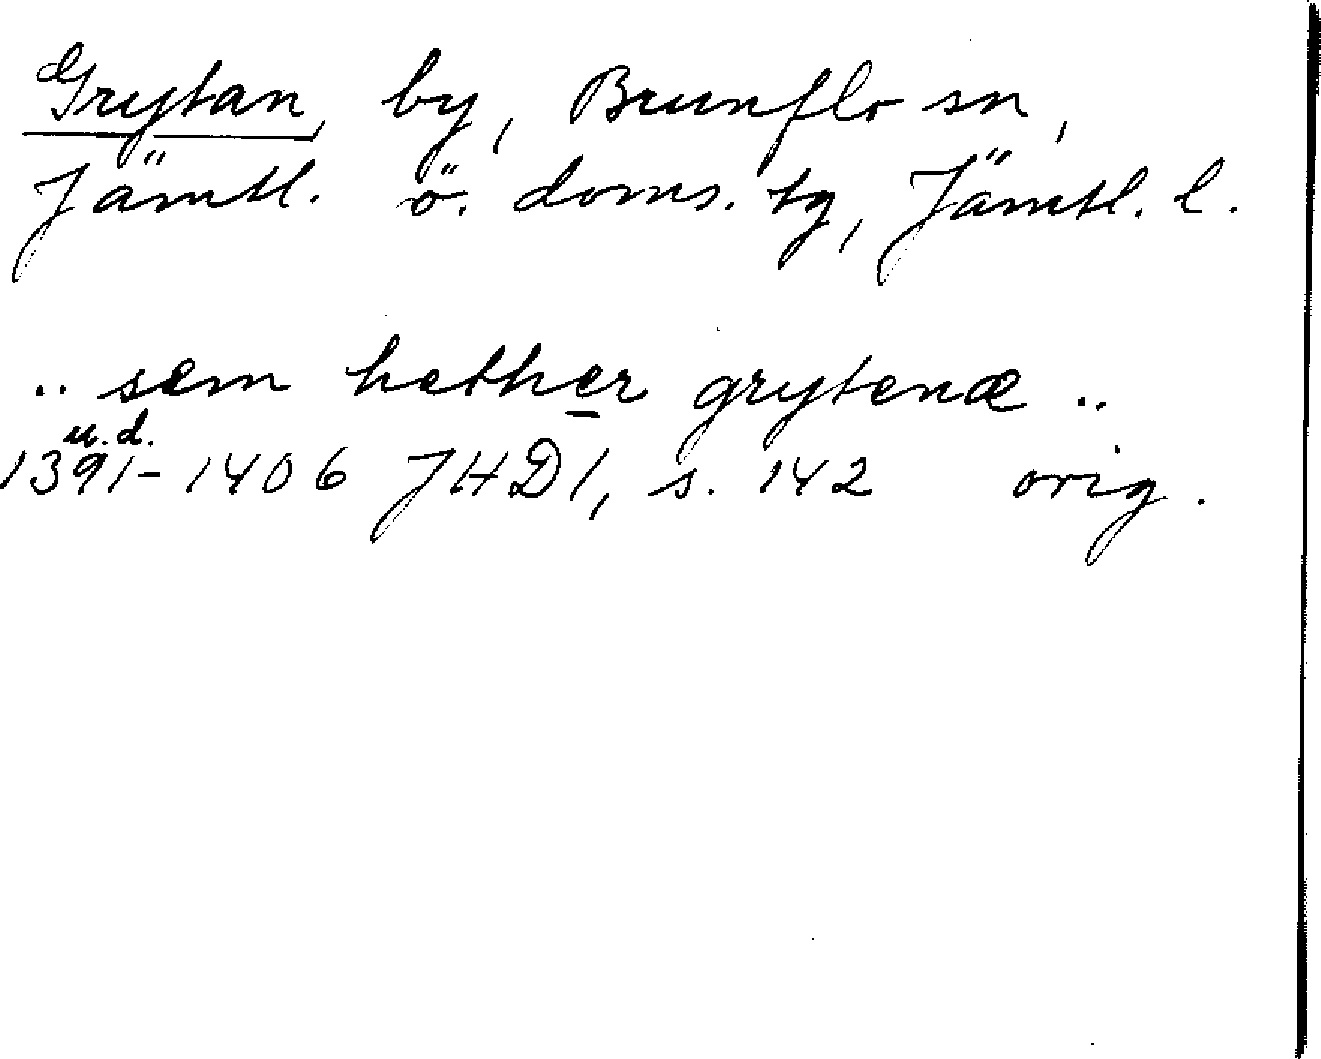 Grytan, by, Brunflo sn,
Jämtl. ö. doms. tg, Jämtl. l.
.. sem hether grytenæ ..
u.d.
1391-1406 JHD1, s. 142 orig.